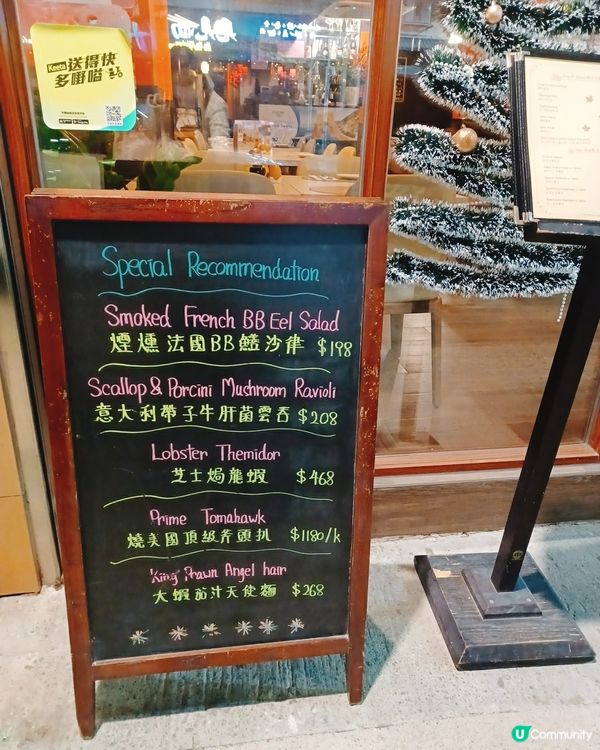 Keeta 送得快
多嘢嗌
Special Recommendation
Smoked French BB Eel Salad
煙燻法國BB鱔沙律 $198
Scallop & Porcini Mushroom Ravioli
意大利帶子牛肝菌雲吞 $208
Lobster Themidor
芝士焗龍蝦 $468
Prime Tomahawk
燒美國頂級斧頭扒 $1180/k
King Prawn Angel hair
大蝦茄汁天使麵 $268
U Community